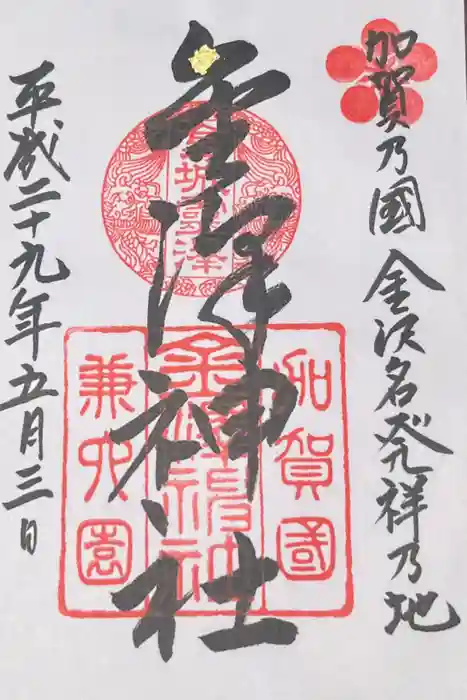 加賀乃國 金沢名発祥乃地
金澤神社
平成二十九年五月三日
金城霊澤
加賀國
金澤神社
兼六園